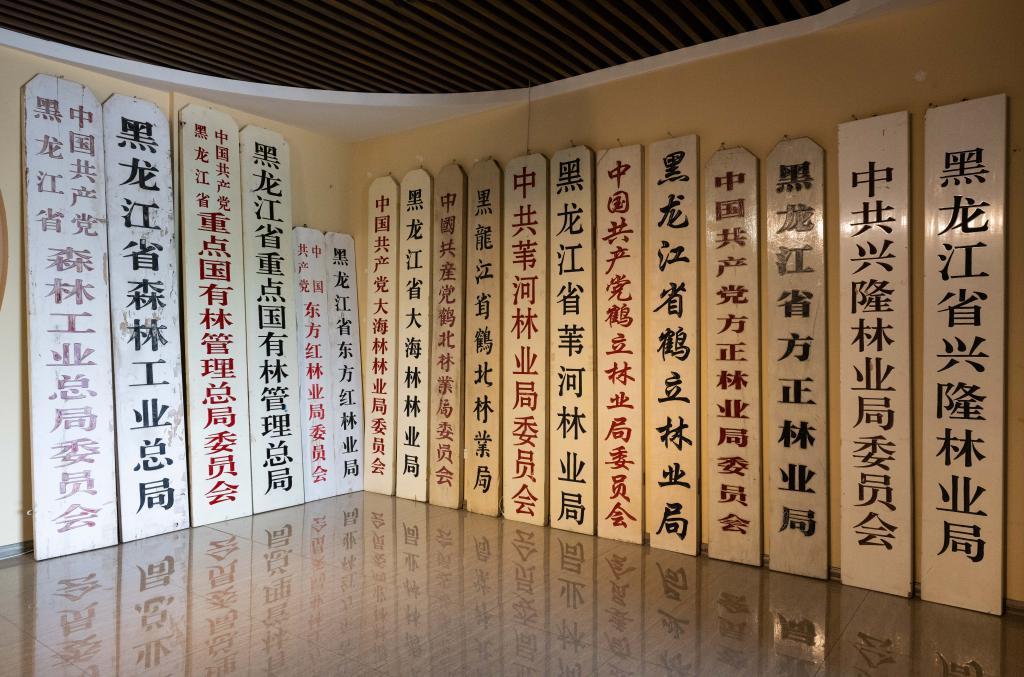 中国共产党
黑龙江省
森林工业总局委员会
黑龙江省森林工业总局
中国共产党
黑龙江省
重点国有林管理总局委员会
黑龙江省重点国有林管理总局
中国
共产党
东方红林业局委员会
黑龙江省东方红林业局
中国共产党大海林林业局委员会
黑龙江省大海林林业局
中國共産党鹤北林業局委员会
黑龍江省鹤北林業局
中共苇河林业局委员会
黑龙江省苇河林业局
中国共产党鹤立林业局委员会
黑龙江省鹤立林业局
中国共产党方正林业局委员会
黑龙江省方正林业局
中共兴隆林业局委员会
黑龙江省兴隆林业局